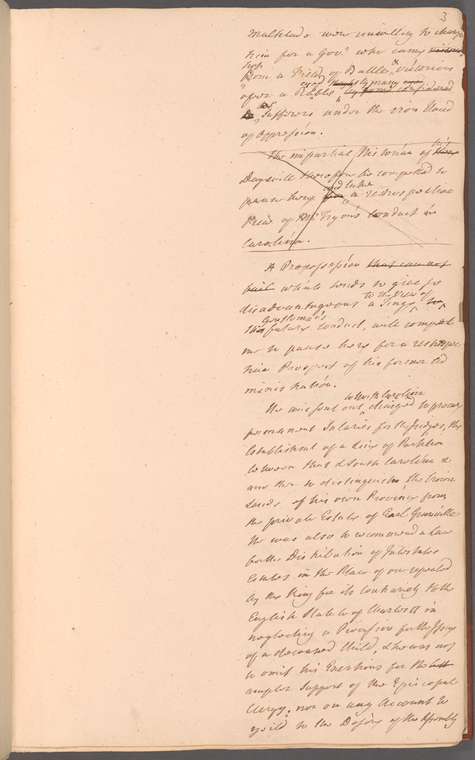 3
Multitude were unwilling to charge
him for a Gov.r who came
fresh from a Field of Battle, victorious
over a Rabble
Sufferers under the iron Hand
of Oppression.
The impartial Historian of
Daysville therefore be compelled to
pause here and take a retrospective
View of Mr Tryon's Conduct in
Carolina.
A Prepossession that can not
fail which tends to give
disadvantageous a Tinge to the View of
this Gentleman's future conduct, will compel
me to pause here for a
Prospect of his former Ad
ministration.
He was sent out to North Carolina charged to procure
permanent Salaries for the Judges, the
Establishment of a Line of Partition
between that & South Carolina &
another to distinguish the Crown
Lands of his own Province from
the private Estate of Earl Granville
He was also to recommend a Law
for the Distribution of Intestates
Estates in the Place of one repealed
by the King for its contrariety to the
English Statute of Charles II in
neglecting a Provision for the Issue
of a deceased Child, & he was not
to omit his Exertions for the
ampler Support of the Episcopal
Clergy, nor on any Account to
yield to the Desires of the Assembly